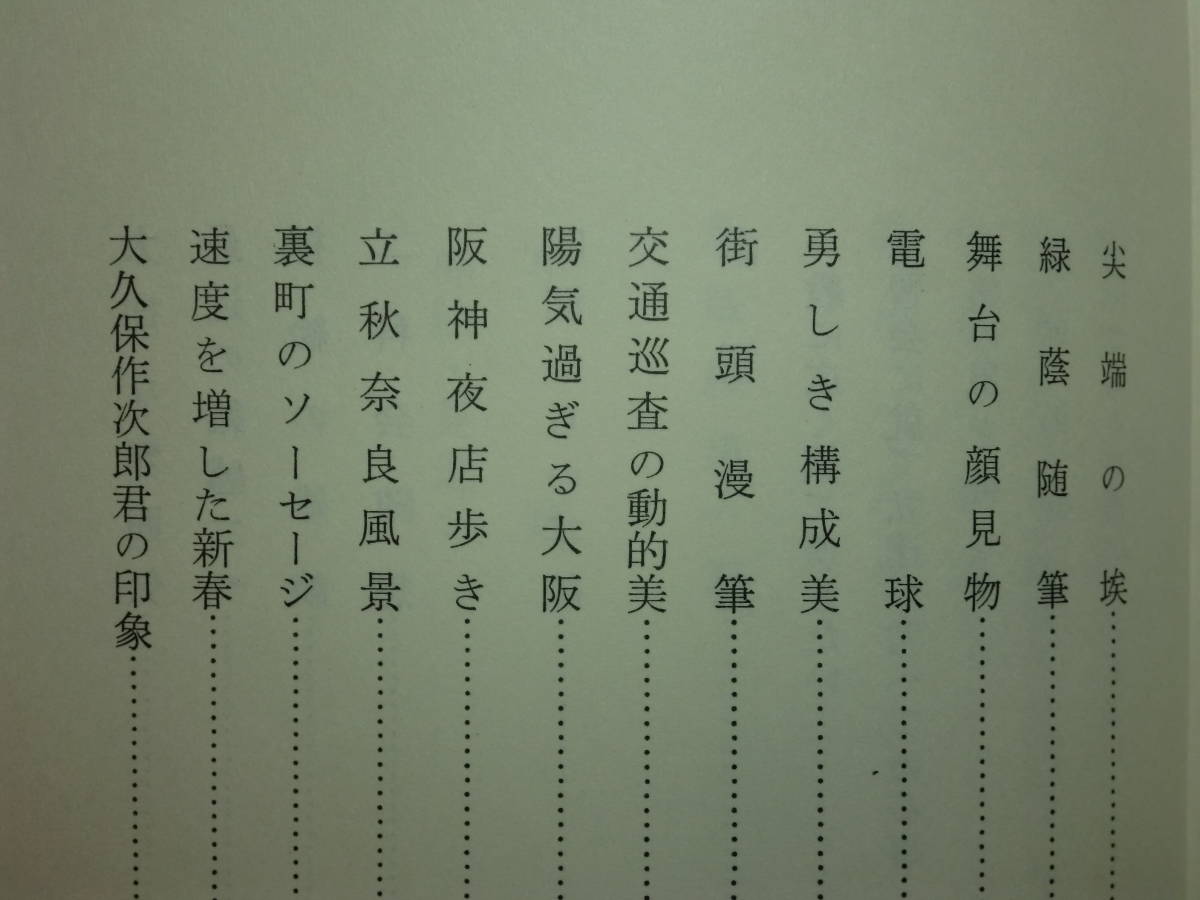 尖端の埃……………………
緑蔭随筆……………………
舞台の顔見物……………………
電球……………………
勇しき構成美……………………
街頭漫筆……………………
交通巡査の動的美……………………
陽気過ぎる大阪……………………
阪神夜店歩き……………………
立秋奈良風景……………………
裏町のソーセージ……………………
速度を増した新春……………………
大久保作次郎君の印象…………………